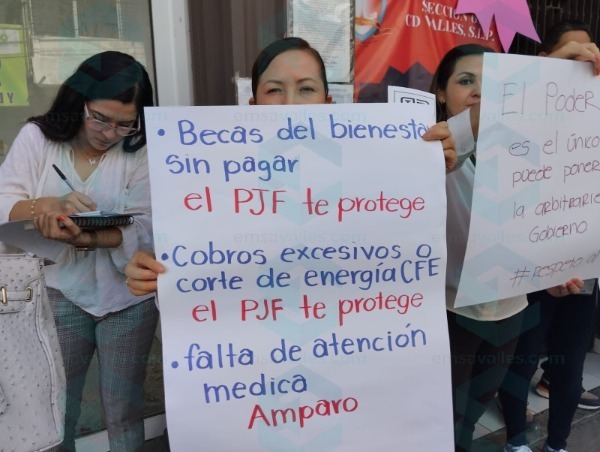 SECCIÓN
CD VALLES, S.L.P.
• Becas del bienesta
sin pagar
el PJF te protege
• Cobros excesivos o
corte de energía CFE
el PJF te protege
• falta de atención
medica
Amparo
El Poder
es el único
puede poner
la arbitrarie
Gobierno
#RESPETO al
emsavalles.com